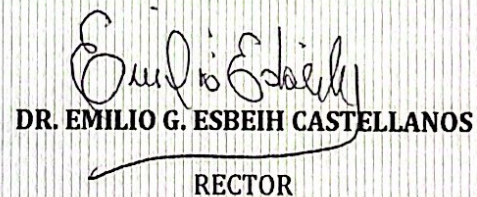 Emilio Esbeih
DR. EMILIO G. ESBEIH CASTELLANOS
RECTOR